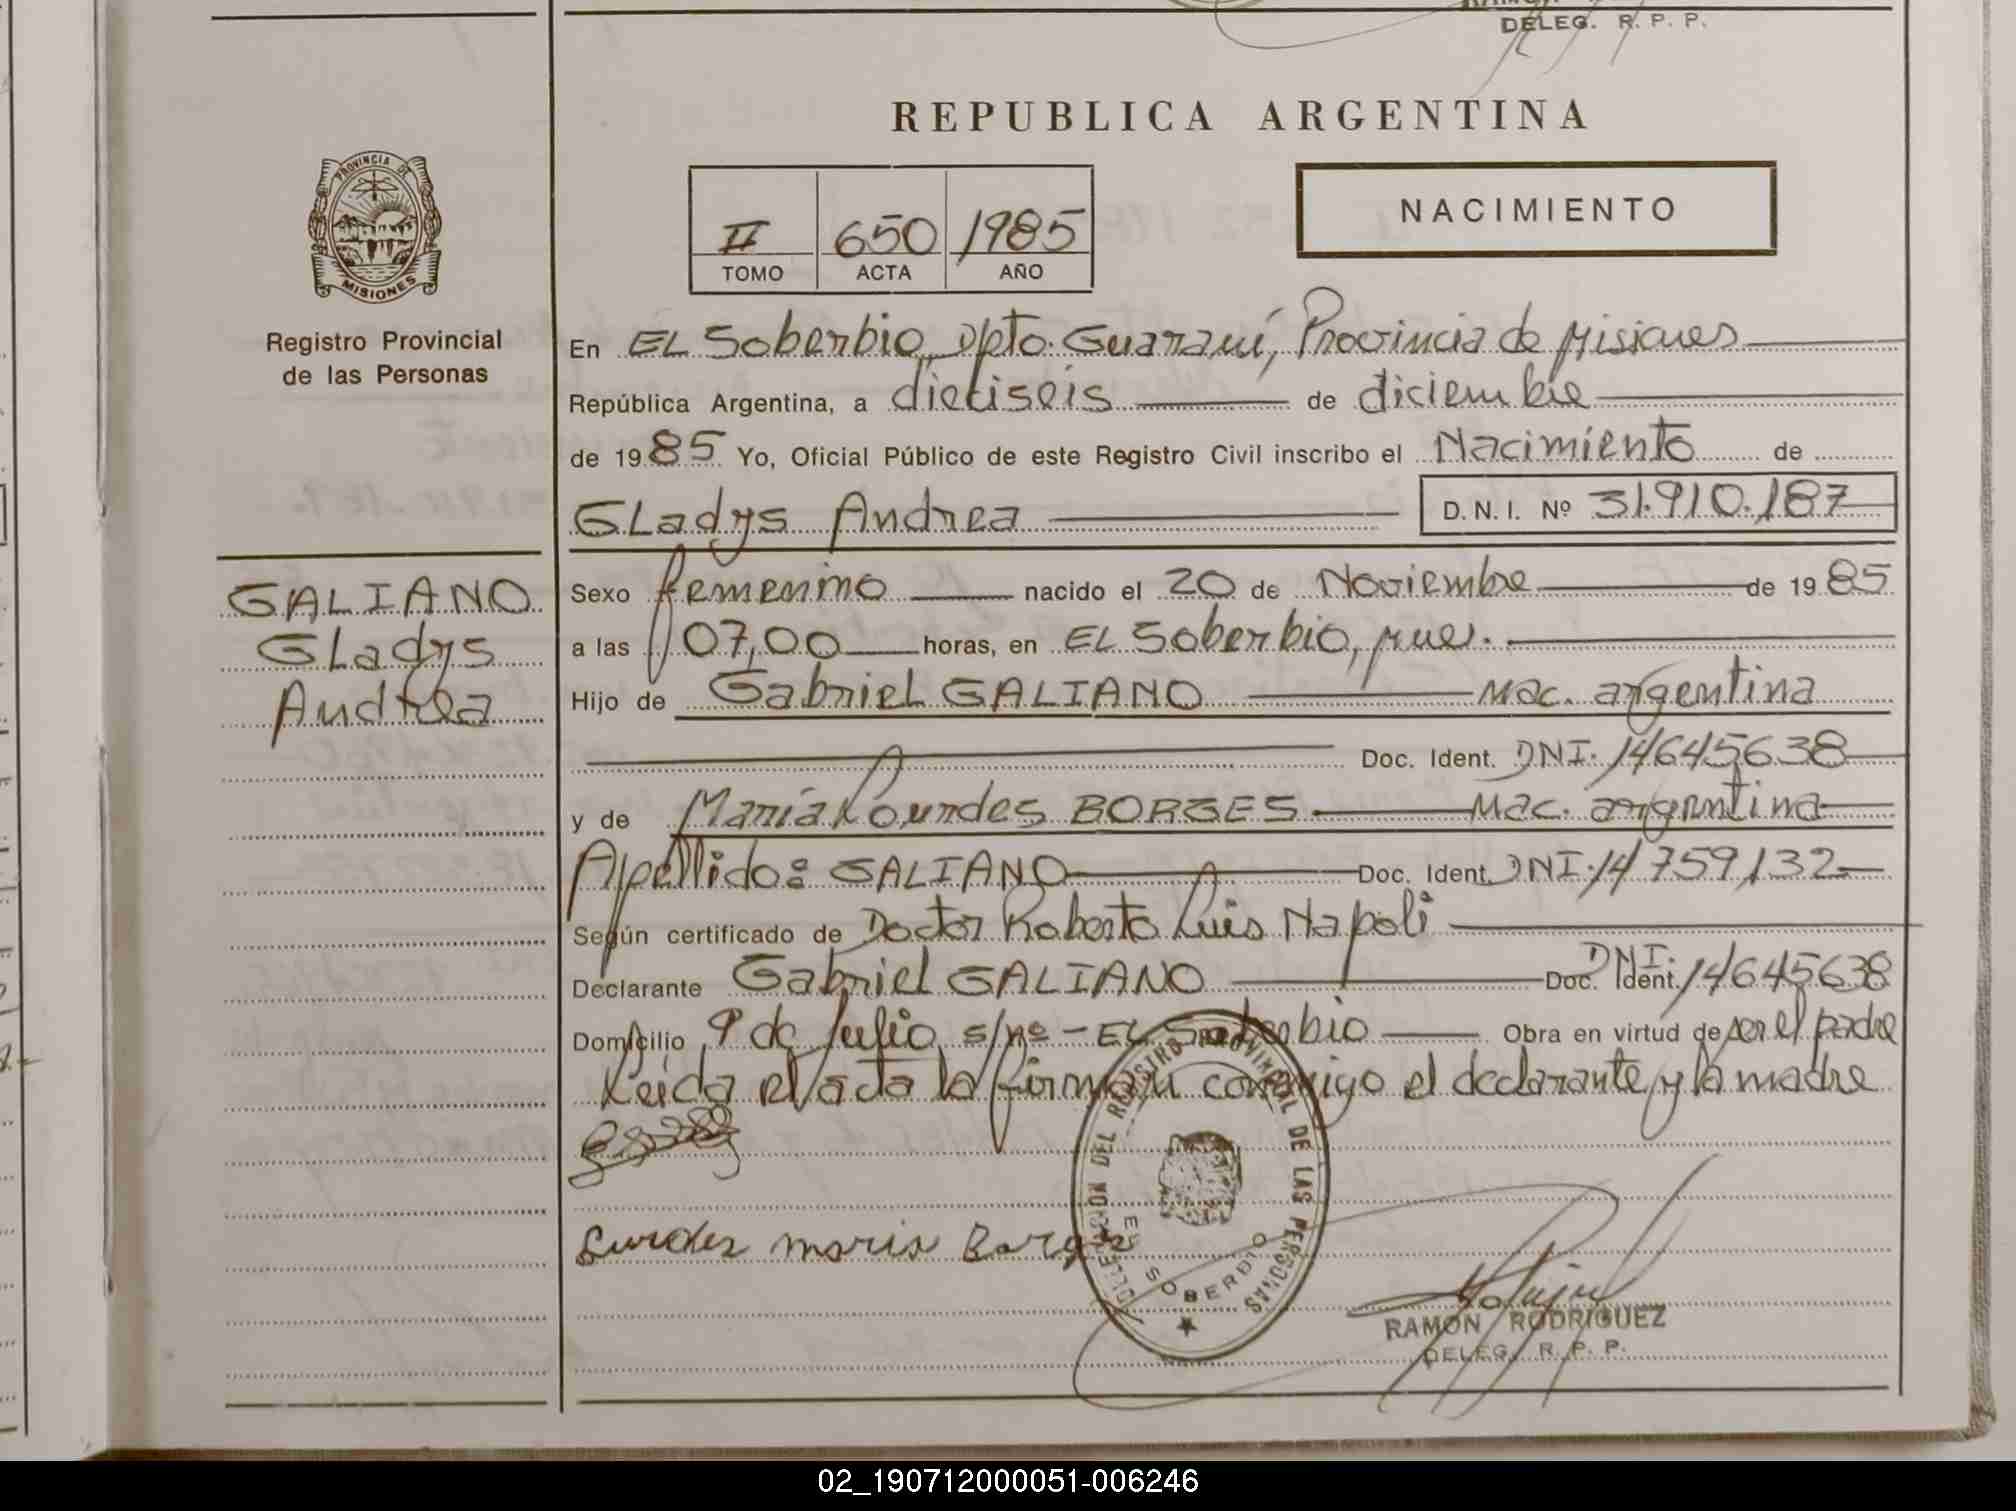 DELEG. R. P. P.
REPUBLICA ARGENTINA
PROVINCIA DE
MISIONES
Registro Provincial
de las Personas
II 650 1985
TOMO ACTA AÑO
NACIMIENTO
En EL Soberbio, Dpto. Guaraní, Provincia de Misiones
República Argentina, a dieciseis de diciembre
de 1985 Yo, Oficial Público de este Registro Civil inscribo el Nacimiento de
GLadys Andrea D. N. I. Nº 31.910.187
GALIANO
GLadys
Andrea
Sexo femenino nacido el 20 de Noviembre de 1985
a las 07,00 horas, en EL Soberbio, mnes.
Hijo de GabrieL GALIANO Nac. argentina
Doc. Ident. DNI. 14645638
y de María Lourdes BORGES Nac. argentina
Apellido: GALIANO Doc. Ident. DNI. 14759132
Según certificado de Doctor Roberto Luis Napoli
Declarante Gabriel GALIANO Doc. Ident. DNI. 14645638
Domicilio 9 de Julio s/nº - EL Soberbio Obra en virtud de ser el padre
Leída el acta la firman conmigo el declarante y la madre
Lurdes maria Borges
DELEGACION DEL REGISTRO PROVINCIAL DE LAS PERSONAS
EL SOBERBIO
RAMON RODRIGUEZ
DELEG. R. P. P.
02_190712000051-006246